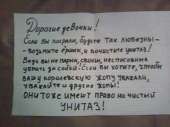 Дорогие девочки!
Если вы посрали, будьте так любезны -
- возьмите ёршик, и почистите унитаз!
Ведь вы не парни, свиньи, неспособные
убрать за собой! Если вы хотите, чтобы
вашу королевскую жопу уважали,
уважайте и другие жопы!
ОНИ ТОЖЕ ИМЕЮТ ПРАВО НА ЧИСТЫЙ
УНИТАЗ!